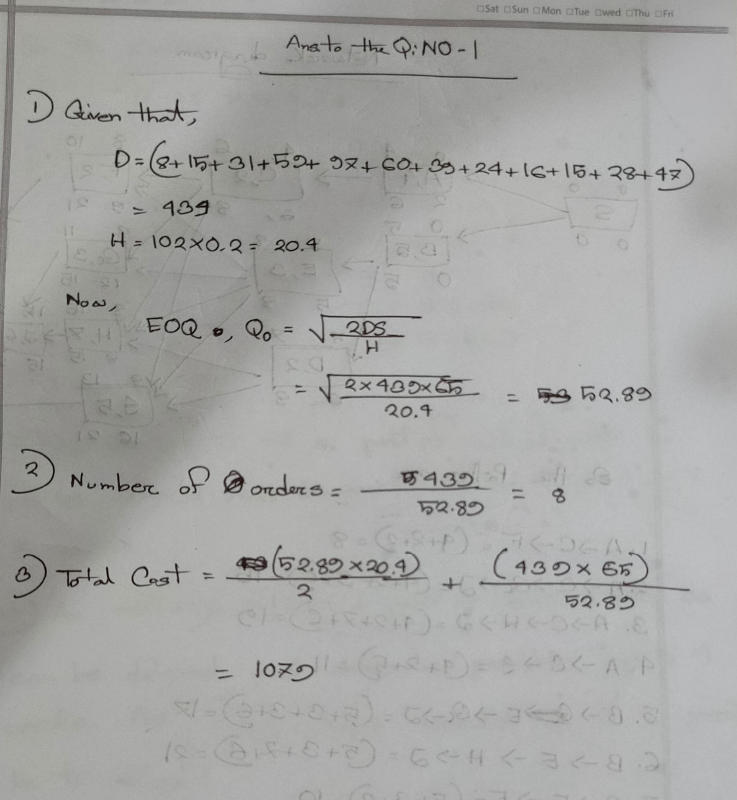 □Sat □Sun □Mon □Tue □wed □Thu □Fri
Ans to the Q: NO - 1
1) Given that,
D = (8+15+31+59+97+60+39+24+16+15+28+47)
= 439
H = 102×0.2 = 20.4
Now,
EOQ, Q₀ = √(2DS / H)
= √(2×439×65 / 20.4) = 52.89
2) Number of orders = 439 / 52.89 = 8
3) Total Cost = (52.89×20.4) / 2 + (439×65) / 52.89
= 1079